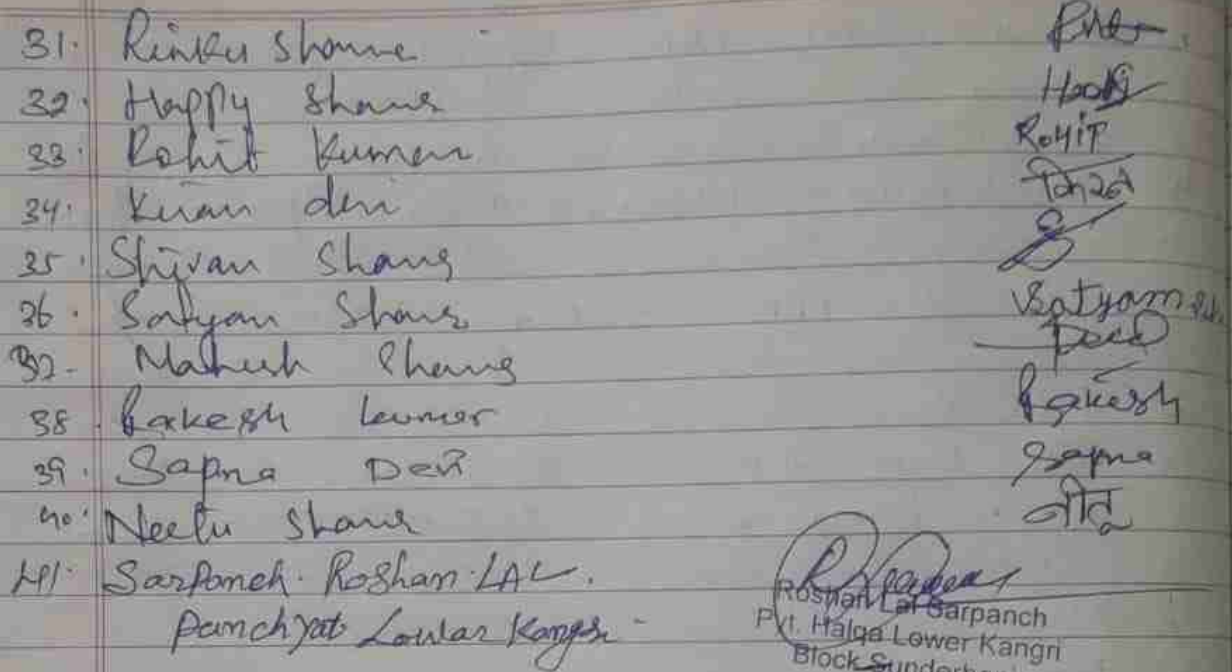 31. Rinku Sharma
32. Happy Sharma Happy
33. Rohit Kumar ROHIT
34. Kiran devi किरन
35. Shivan Sharma
36. Satyam Sharma Satyam
37. Mahesh Sharma
38. Rakesh kumar Rakesh
39. Sapna Devi Sapna
40. Neetu Sharma नीतू
41. Sarpanch. Roshan LAL.
Panchyat Lowar Kangri
Roshan Lal Sarpanch
Pyt. Halqa Lower Kangri
Block